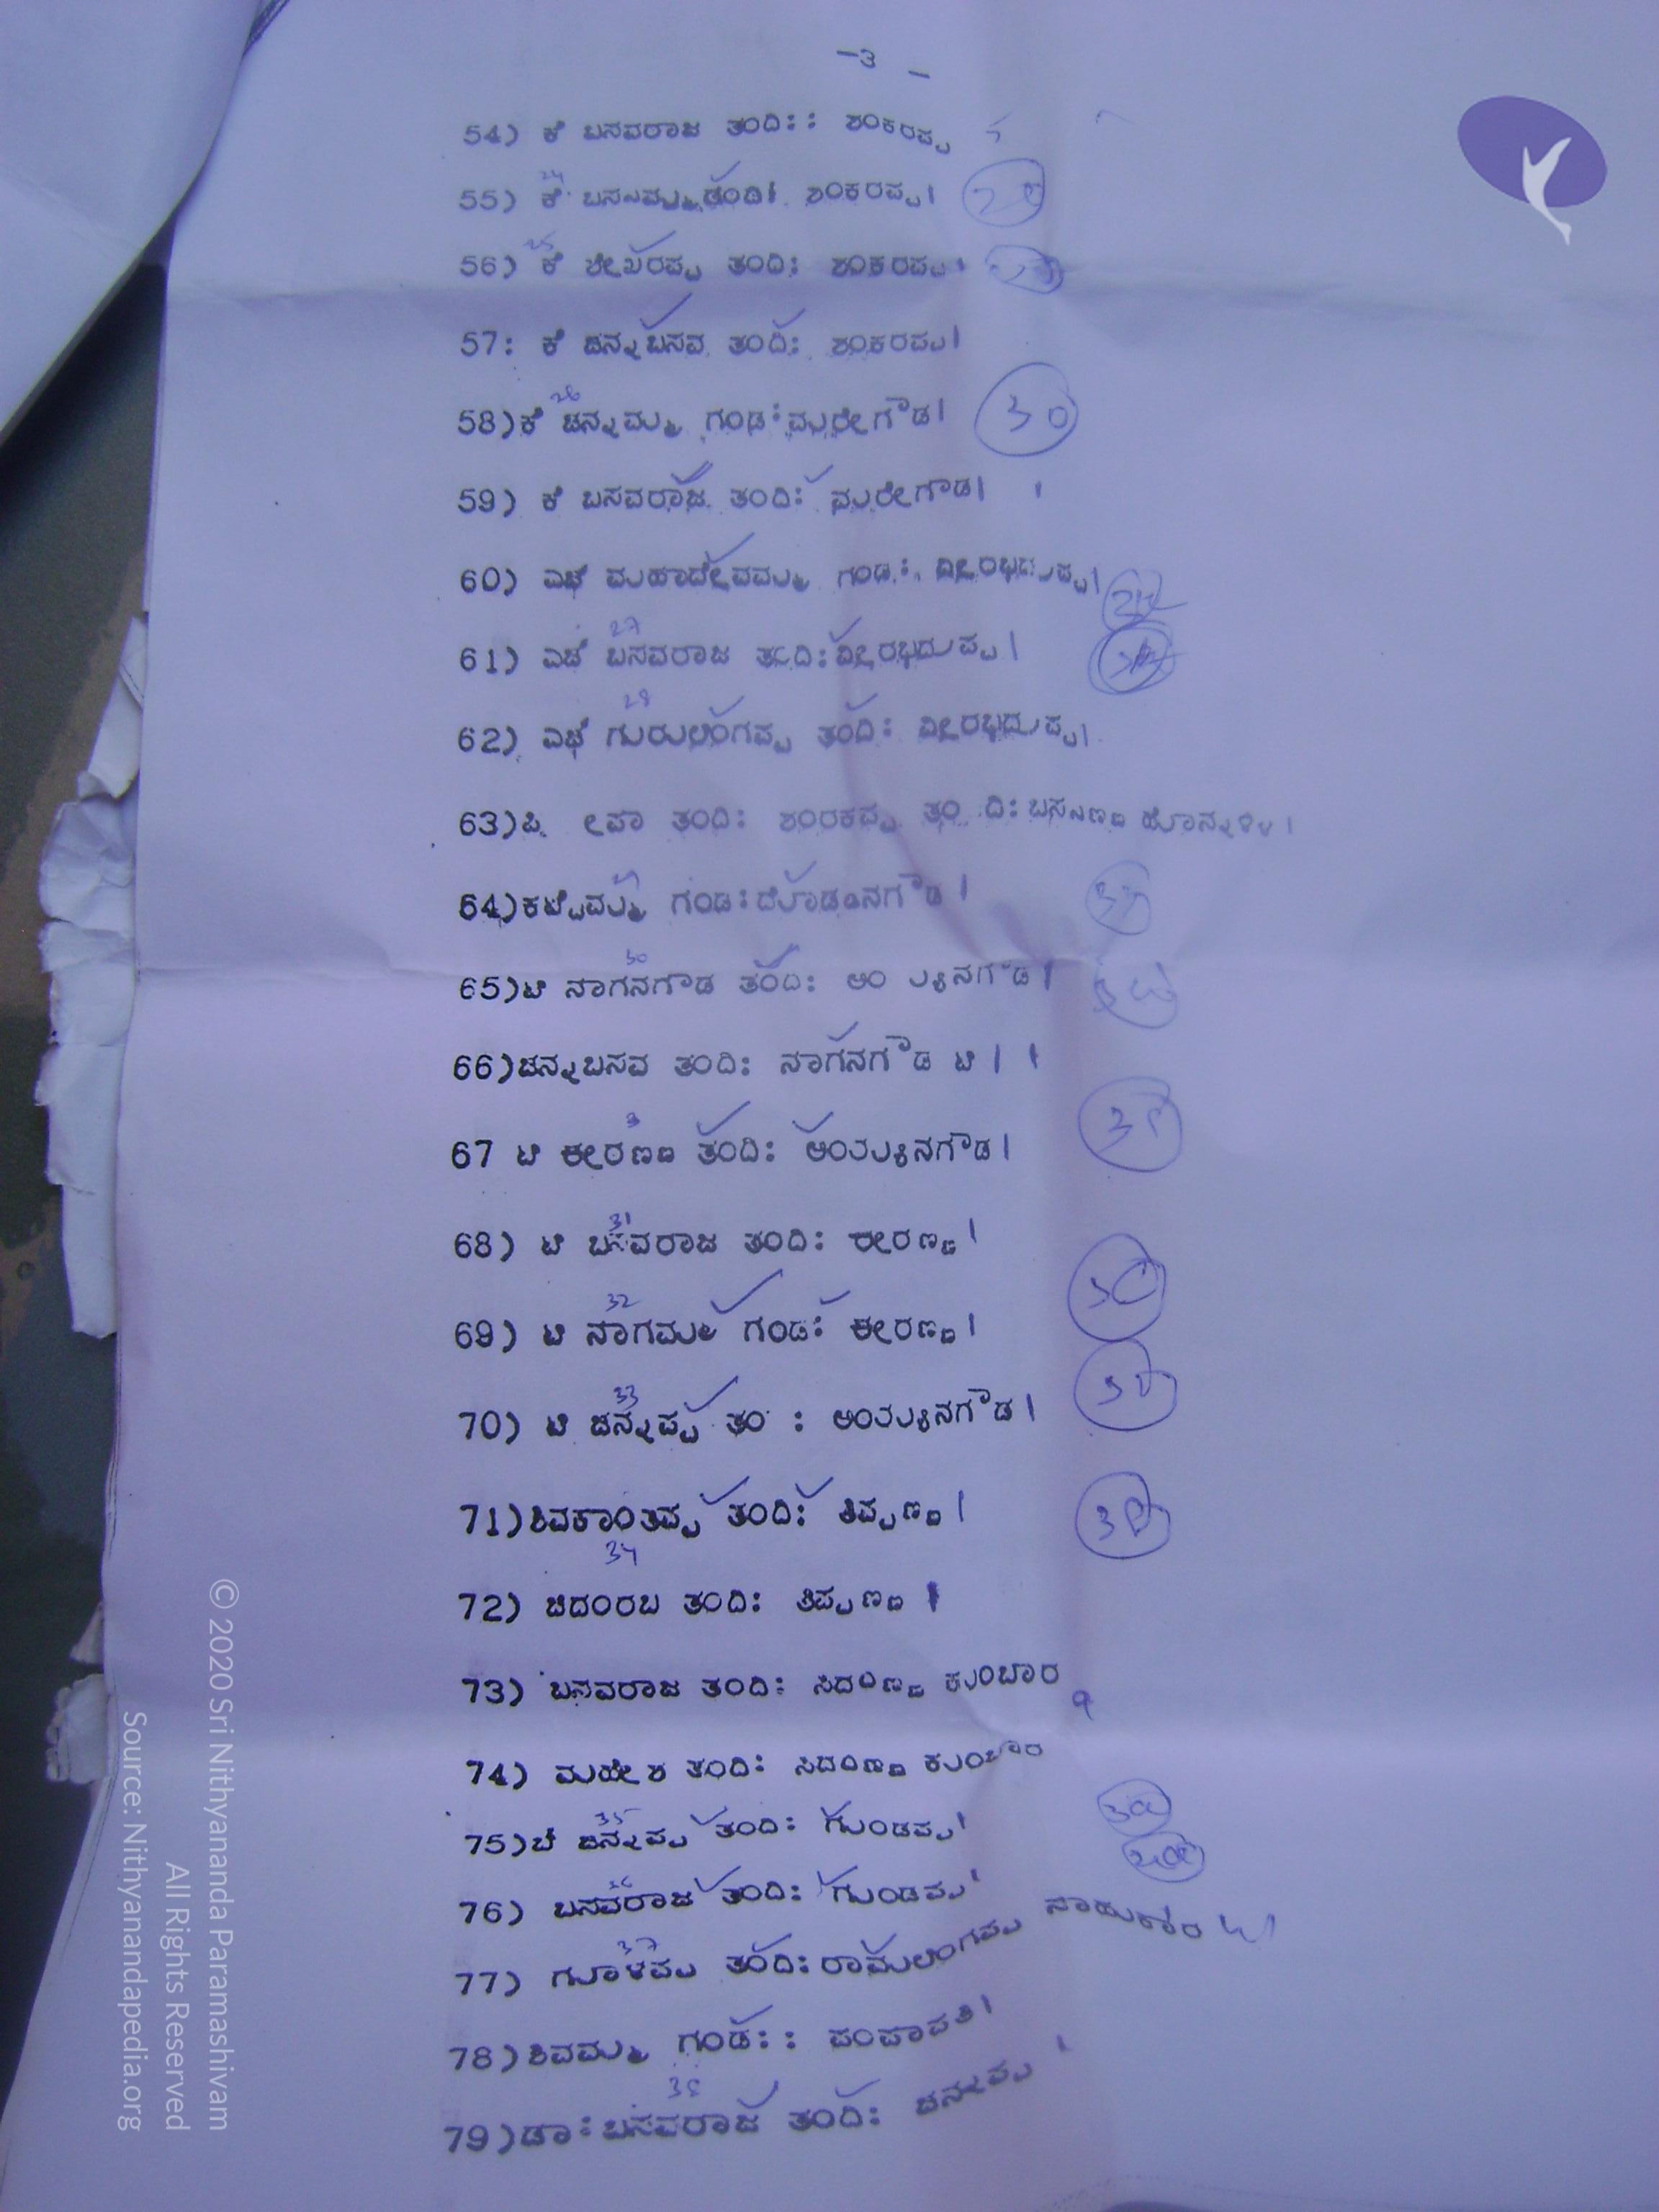 -3 -
54) ಕೆ ಬಸವರಾಜ ತಂದಿ:: ಶಂಕರಪ್ಪ
55) ಕೆ ಬಸಮ್ಮ ತಂದಿ: ಶಂಕರಪ್ಪ|
56) ಕೆ ಶೇಖರಪ್ಪ ತಂದಿ: ಶಂಕರಪ್ಪ
57: ಕೆ ಚನ್ನಬಸವ ತಂದಿ: ಶಂಕರಪ್ಪ|
58)ಕೆ ಚನ್ನಮ್ಮ ಗಂಡ: ಮುರೇಗೌಡ| 30
59) ಕೆ ಬಸವರಾಜ ತಂದಿ: ಮುರೇಗೌಡ|
60) ಎಚ್ ಮಹಾದೇವಮ್ಮ ಗಂಡ: ವೀರಭದ್ರಪ್ಪ|
61) ಎಚ್ ಬಸವರಾಜ ತಂದಿ: ವೀರಭದ್ರಪ್ಪ|
62) ಎಚ್ ಗುರುಲಿಂಗಪ್ಪ ತಂದಿ: ವೀರಭದ್ರಪ್ಪ|
63) ತಂದಿ: ತಂ ದಿ: ಬಸವಣ್ಣ
64) ಗಂಡ: ದೊಡ್ಡನಗೌಡ|
65)ಟಿ ನಾಗನಗೌಡ ತಂದಿ:
66)ಚನ್ನಬಸವ ತಂದಿ: ನಾಗನಗೌಡ ಟಿ|
67 ಟಿ ಈರಣ್ಣ ತಂದಿ: ಅಂಯ್ಯನಗೌಡ|
68) ಟಿ ಬಸವರಾಜ ತಂದಿ: ಈರಣ್ಣ|
69) ಟಿ ನಾಗಮ್ಮ ಗಂಡ: ಈರಣ್ಣ|
70) ಟಿ ಚನ್ನಪ್ಪ ತಂ : ಅಂಯ್ಯನಗೌಡ|
71)ಶಿವಕಾಂತಪ್ಪ ತಂದಿ: ತಿಪ್ಪಣ್ಣ|
72) ಚಿದಂರಬ ತಂದಿ: ತಿಪ್ಪಣ್ಣ|
73) ಬಸವರಾಜ ತಂದಿ: ಸಿದ್ದಣ್ಣ ಕುಂಬಾರ
74) ಮಹೇಶ ತಂದಿ: ಸಿದ್ದಣ್ಣ ಕುಂಬಾರ
75) ಚನ್ನಪ್ಪ ತಂದಿ: ಗುಂಡಪ್ಪ|
76) ಬಸವರಾಜ ತಂದಿ: ಗುಂಡಪ್ಪ|
77) ಗೂಳಪ್ಪ ತಂದಿ: ರಾಮಲಿಂಗಪ್ಪ ಸಾಹುಕಾರ
78)ಶಿವಮ್ಮ ಗಂಡ:: ಪಂಪಾಪತಿ|
79)ಡಾ: ಬಸವರಾಜ ತಂದಿ: ಚನ್ನಪ್ಪ|
© 2020 Sri Nithyananda Paramashivam
All Rights Reserved
Source: Nithyanandapedia.org